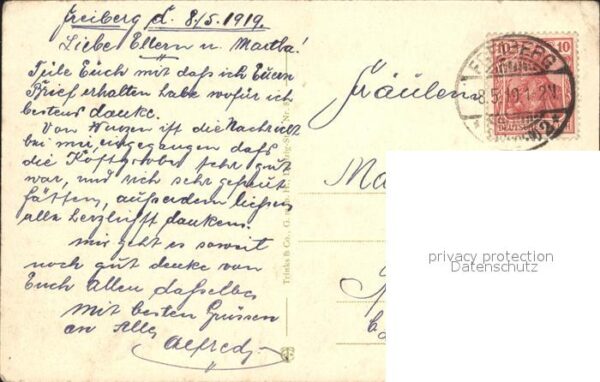 Freiberg d. 8/5. 1919.
Liebe Eltern u. Martha!
Teile Euch mit daß ich Euern
Brief erhalten habe wofür ich
bestens danke.
Von Wurzen ist die Nachricht
bei mir eingegangen daß
die Kostprobe sehr gut
war, und sich sehr gefreut
hätten, außerdem ließen
alle herzlichst danken.
mir geht es soweit
noch gut denke von
Euch Allen dasselbe
Mit besten Grüssen
an Alle
Alfred
Trinks & Co., G. m. b. H., Leipzig
Fräulein
Ma
10 10
FREIBERG
8.5.19.1-2N
privacy protection
Datenschutz